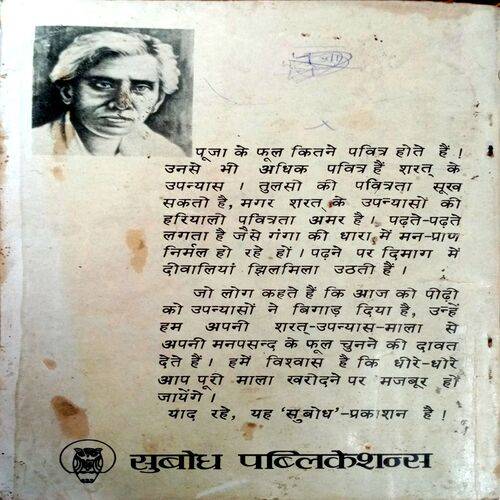 पूजा के फूल कितने पवित्र होते हैं।
उनसे भी अधिक पवित्र हैं शरत् के
उपन्यास। तुलसी की पवित्रता सूख
सकती है, मगर शरत् के उपन्यासों की
हरियाली पवित्रता अमर है। पढ़ते-पढ़ते
लगता है जैसे गंगा की धारा में मन-प्राण
निर्मल हो रहे हों। पढ़ने पर दिमाग में
दीवालियां झिलमिला उठती हैं।
जो लोग कहते हैं कि आज की पीढ़ी
को उपन्यासों ने बिगाड़ दिया है, उन्हें
हम अपनी शरत्-उपन्यास-माला से
अपनी मनपसन्द के फूल चुनने की दावत
देते हैं। हमें विश्वास है कि धीरे-धीरे
आप पूरी माला खरीदने पर मजबूर हो
जायेंगे।
याद रहे, यह 'सुबोध'-प्रकाशन है।
सुबोध पब्लिकेशन्स